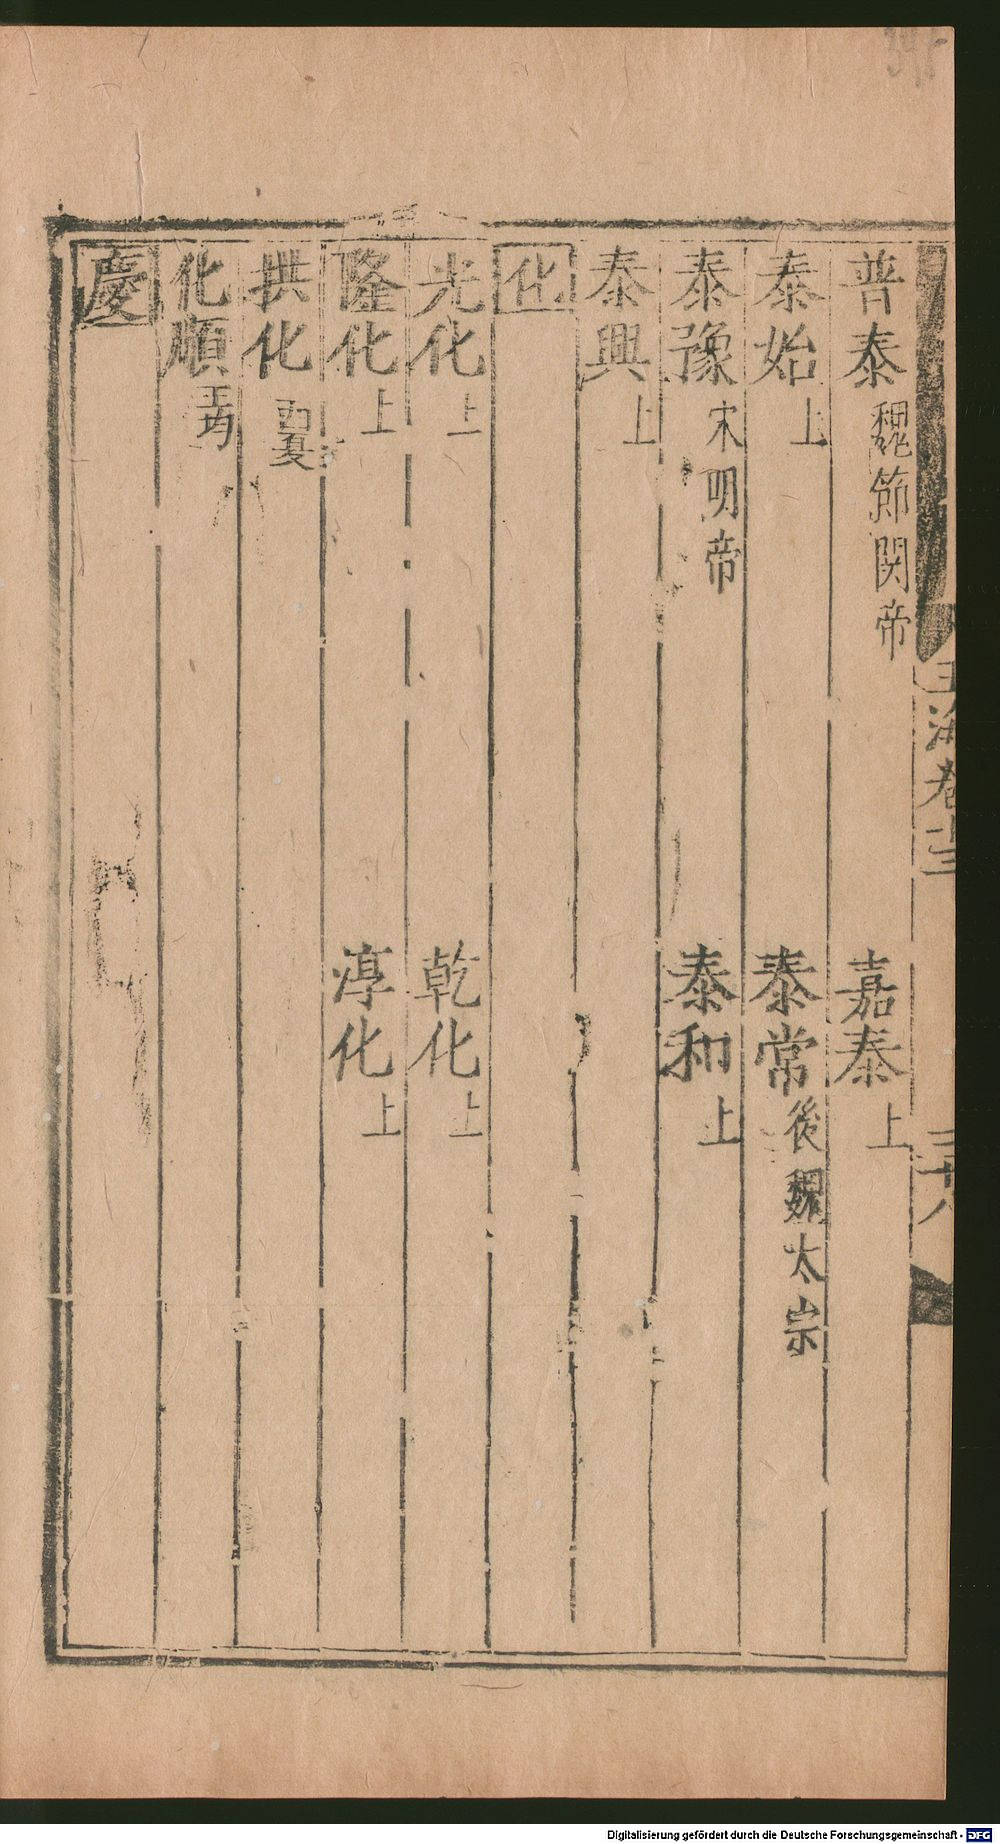 普泰魏節閔帝　嘉泰上
泰始上　泰常後魏太宗
泰豫宋明帝　泰和上
泰興上
化
光化上　乾化上
隆化上　淳化上
拱化西夏
化順王均
慶
玉海卷十三
二十八
Digitalisierung gefördert durch die Deutsche Forschungsgemeinschaft - DFG